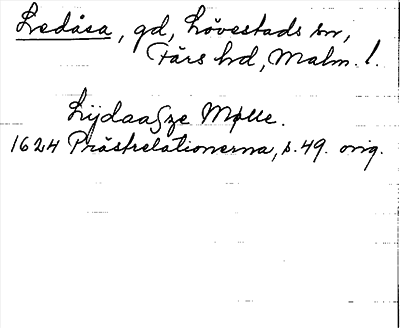 Ledåsa, gd, Lövestads sn,
Färs hd, Malm. l.
Lÿdaaße Mølle.
1624 Prästrelationerna, s. 49. orig.